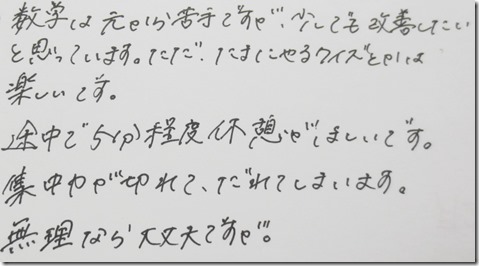 数学は元から苦手ですが、少しでも改善したい
と思っています。ただ、たまにやるクイズとかは
楽しいです。
途中で5分程度休憩がほしいです。
集中力が切れて、だれてしまいます。
無理なら大丈夫ですが。